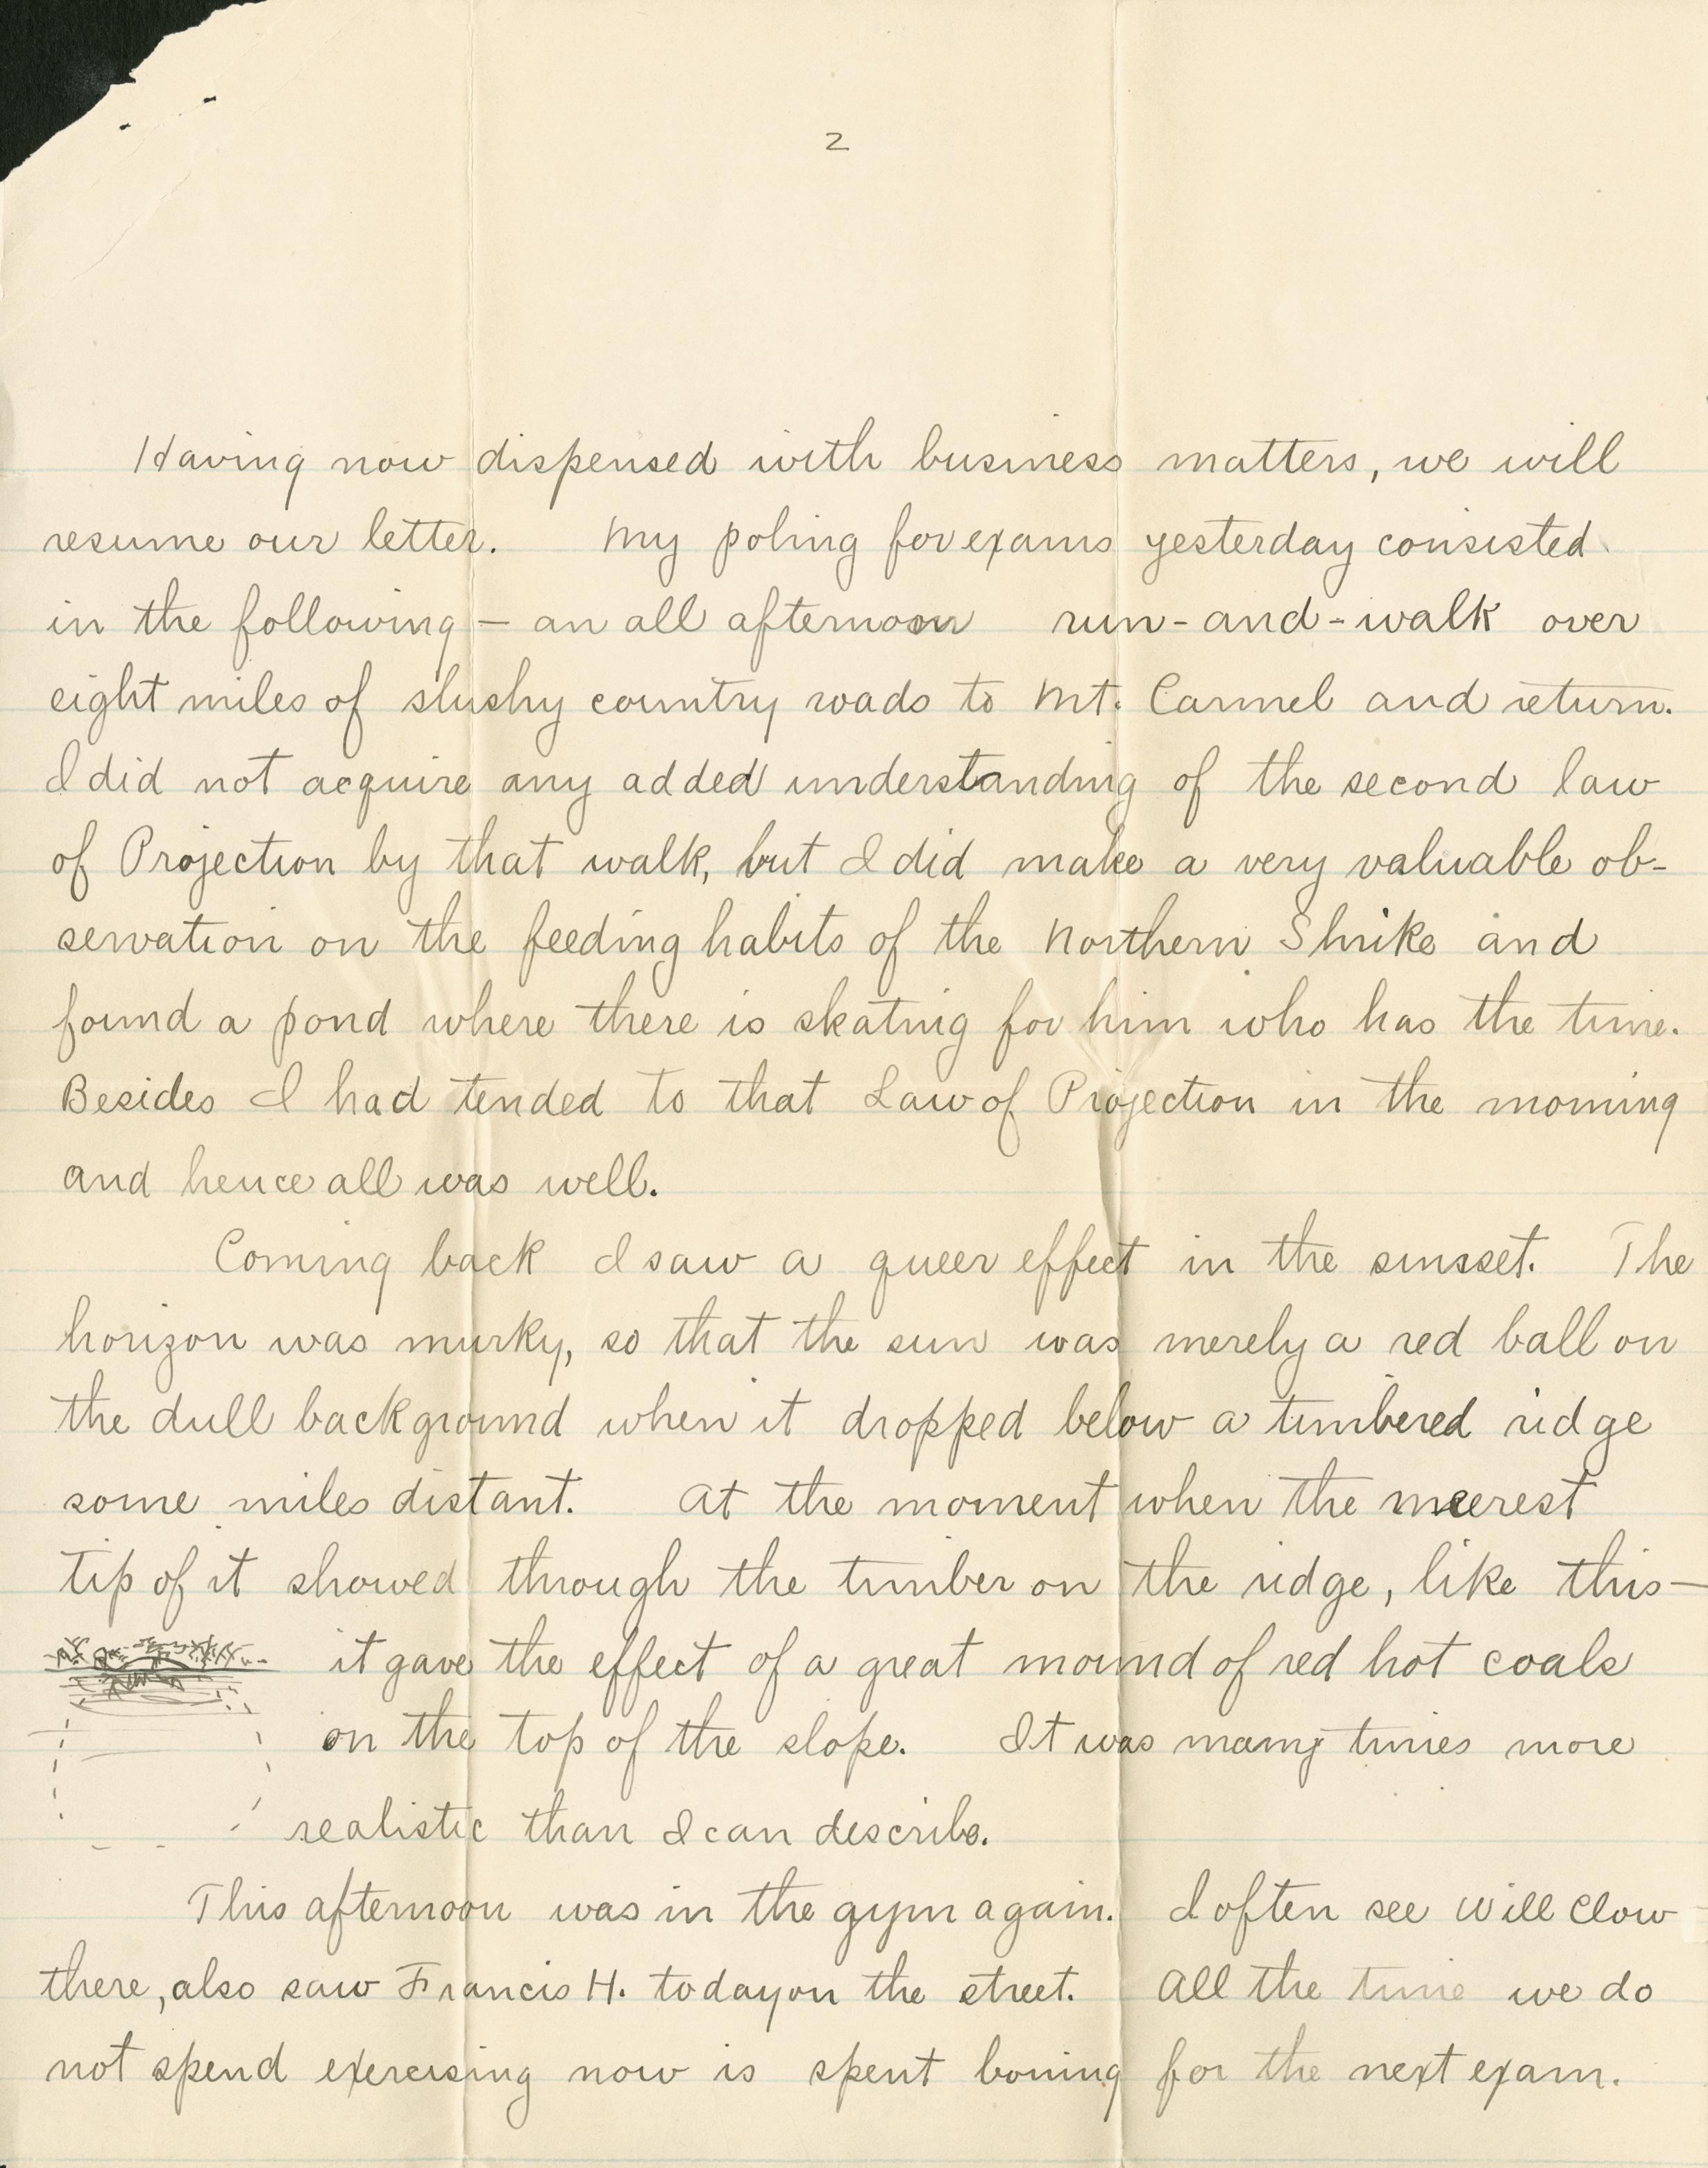 2
Having now dispensed with business matters, we will
resume our letter. My poling for exams yesterday consisted
in the following - an all afternoon run-and-walk over
eight miles of slushy country roads to Mt. Carmel and return.
I did not acquire any added understanding of the second law
of Projection by that walk, but I did make a very valuable ob-
servation on the feeding habits of the Northern Shrike and
found a pond where there is skating for him who has the time.
Besides I had tended to that Law of Projection in the morning
and hence all was well.
Coming back I saw a queer effect in the sunset. The
horizon was murky, so that the sun was merely a red ball on
the dull background when it dropped below a timbered ridge
some miles distant. At the moment when the meerest
tip of it showed through the timber on the ridge, like this —
it gave the effect of a great mound of red hot coals
on the top of the slope. It was many times more
realistic than I can describe.
This afternoon was in the gym again. I often see Will Clow
there, also saw Francis H. today on the street. All the time we do
not spend exercising now is spent boning for the next exam.